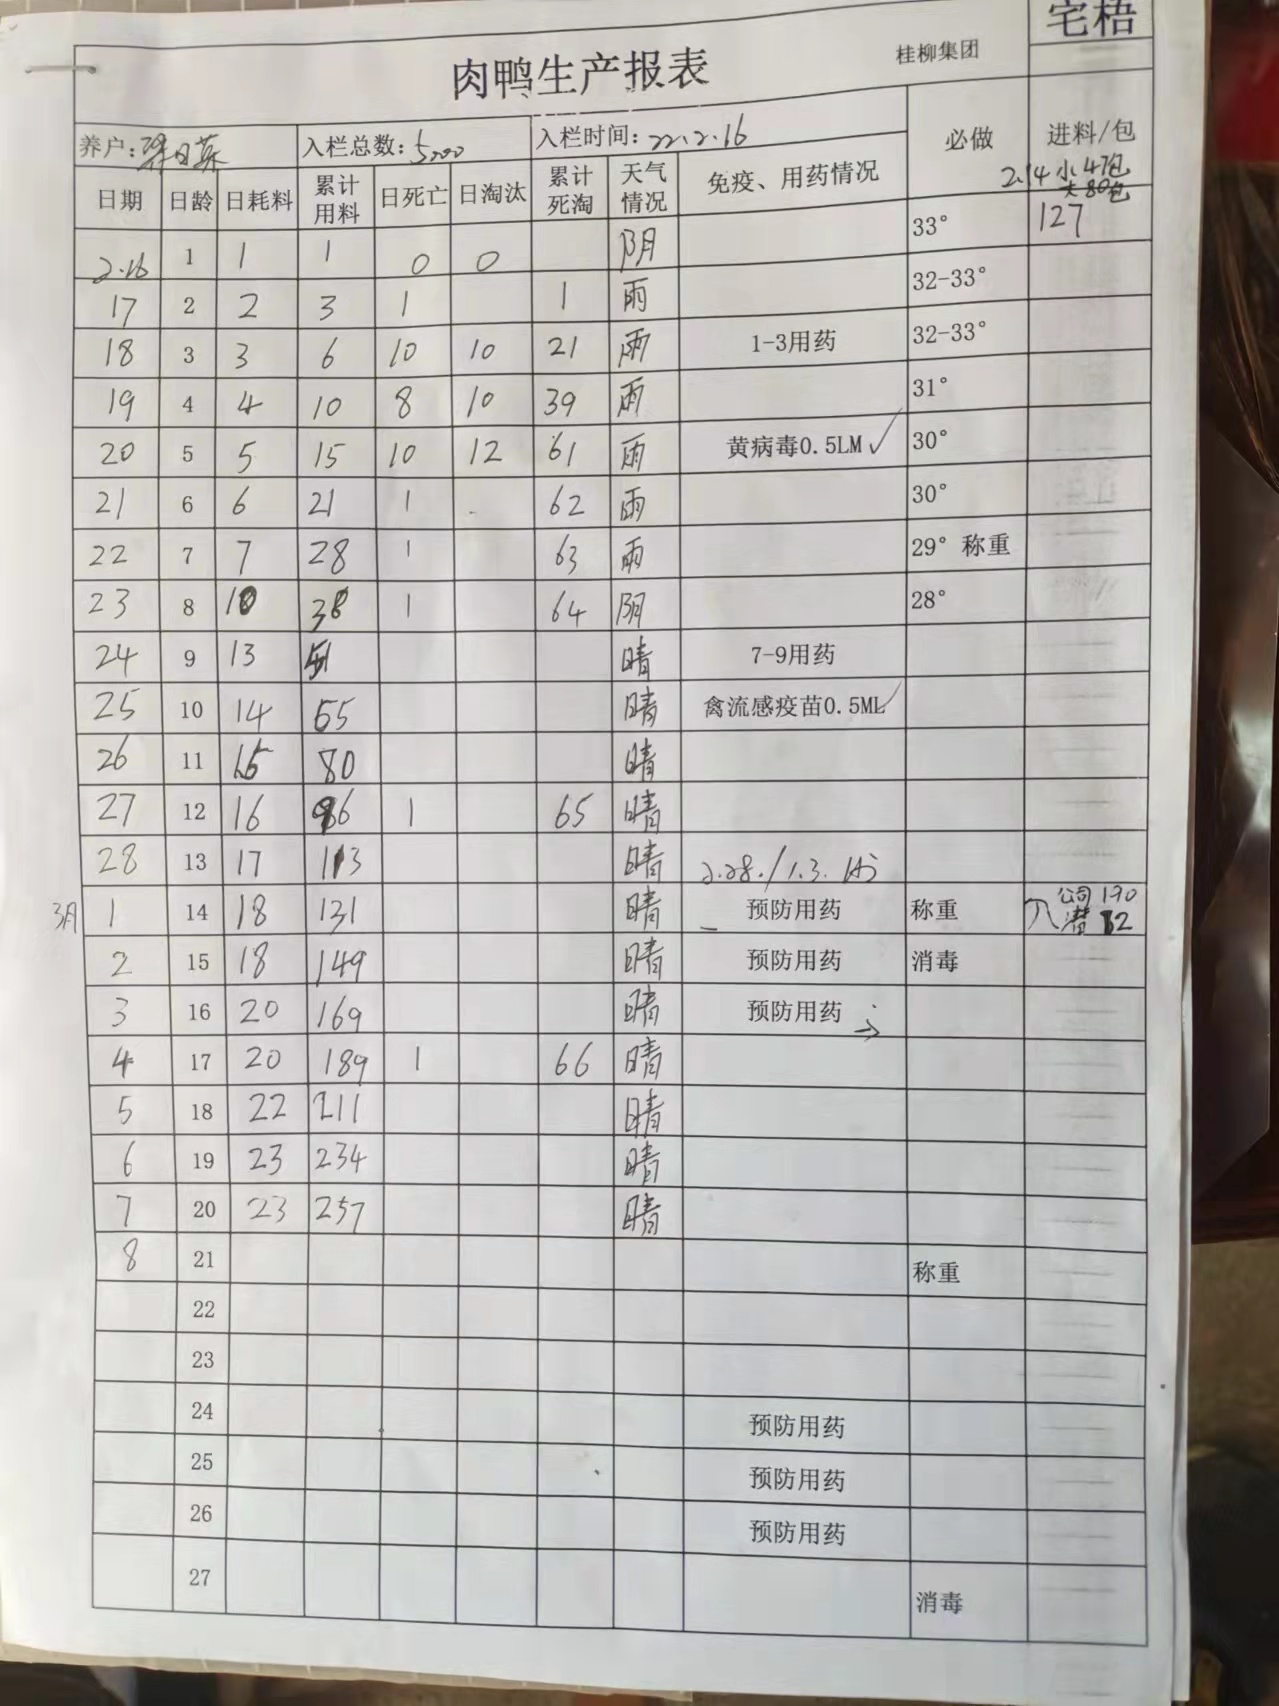 宅梧
肉鸭生产报表
桂柳集团
养户: 日英 入栏总数: 5000 入栏时间: 22.2.16 必做 进料/包
2.14 小47包
大80包
日期 日龄 日耗料 累计用料 日死亡 日淘汰 累计死淘 天气情况 免疫、用药情况
2.16 1 1 1 0 0 阴 33° 127
17 2 2 3 1 1 雨 32-33°
18 3 3 6 10 10 21 雨 1-3用药 32-33°
19 4 4 10 8 10 39 雨 31°
20 5 5 15 10 12 61 雨 黄病毒0.5LM ✓ 30°
21 6 6 21 1 62 雨 30°
22 7 7 28 1 63 雨 29° 称重
23 8 10 38 1 64 阴 28°
24 9 13 51 晴 7-9用药
25 10 14 65 晴 禽流感疫苗0.5ML ✓
26 11 15 80 晴
27 12 16 96 1 65 晴
28 13 17 113 晴 2.28./1.3.
3月 1 14 18 131 晴 预防用药 称重 公司 170
2 15 18 149 晴 预防用药 消毒
3 16 20 169 晴 预防用药 →
4 17 20 189 1 66 晴
5 18 22 211 晴
6 19 23 234 晴
7 20 23 257 晴
8 21 称重
22
23
24 预防用药
25 预防用药
26 预防用药
27 消毒